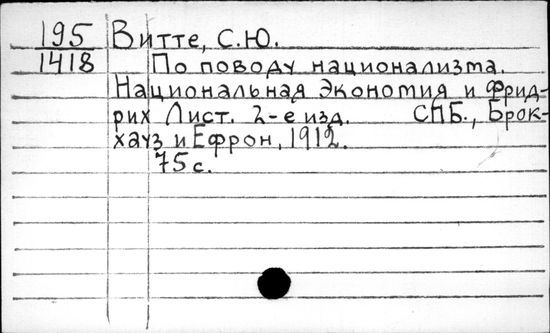 195 Витте, С.Ю.
1418 По поводу национализма.
Национальная экономия и Фрид-
рих Лист. 2-е изд. СПБ., Брок-
хауз и Ефрон, 1912.
75 с.